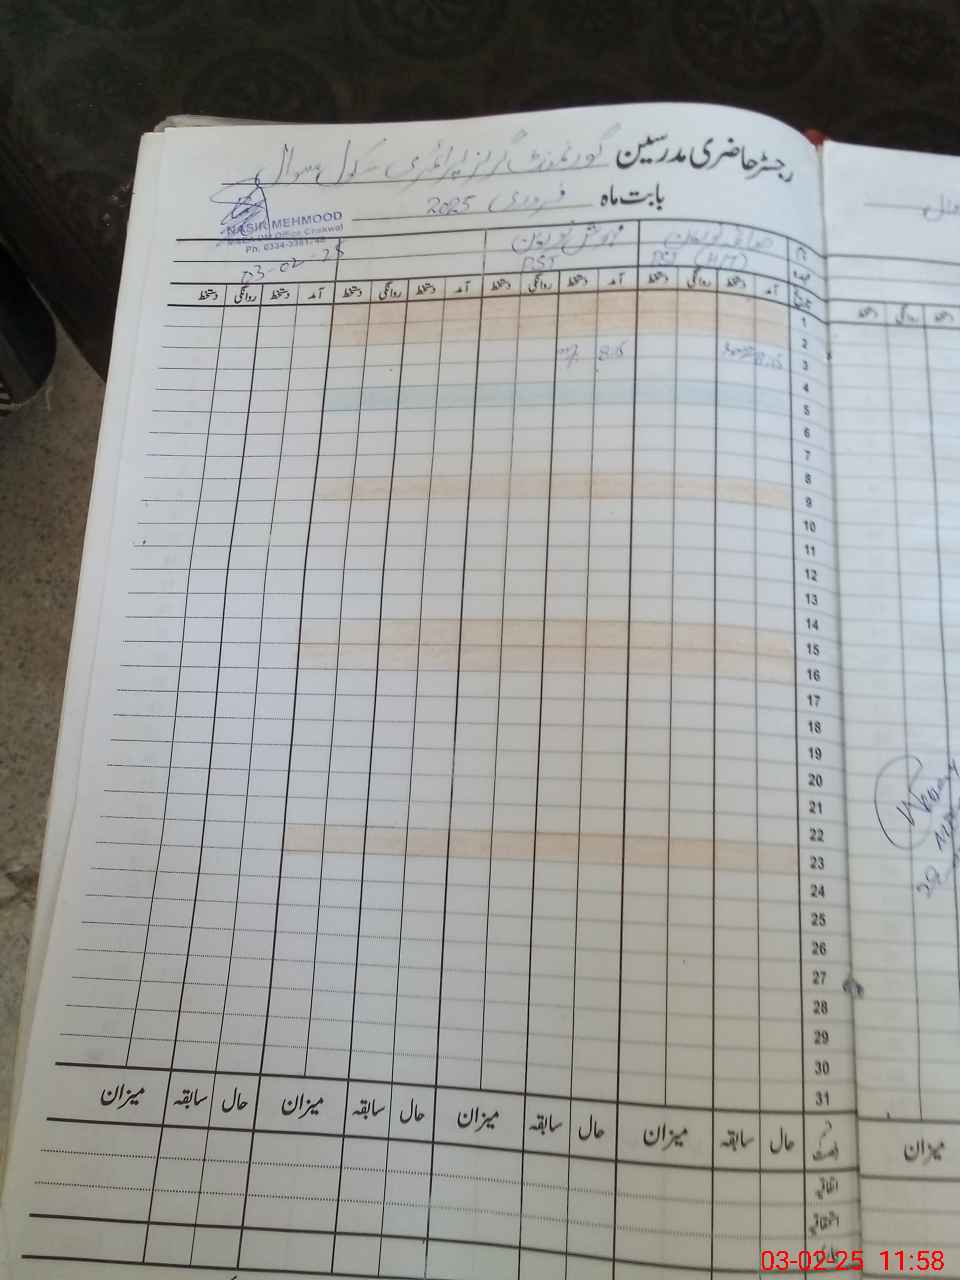 رجسٹر حاضری مدرسین گورنمنٹ گرلز پرائمری سکول
بابت ماہ فروری 2025
NASIR MEHMOOD
Chakwal
03-02-25
نام
PST (H/T)
PST
آمد دستخط روانگی دستخط آمد دستخط روانگی دستخط آمد دستخط روانگی دستخط آمد دستخط روانگی دستخط
1
2
3 8:15 8:15
4
5
6
7
8
9
10
11
12
13
14
15
16
17
18
19
20
21
22
23
24
25
26
27
28
29
30
31
حال سابقہ میزان حال سابقہ میزان حال سابقہ میزان حال سابقہ میزان
اتفاقیہ
استحقاقیہ
میزان
03-02-25 11:58